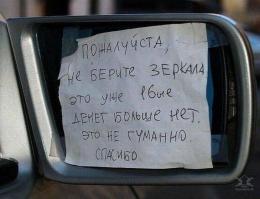 ПОЖАЛУЙСТА,
НЕ БЕРИТЕ ЗЕРКАЛА
ЭТО УЖЕ 16ЫЕ
ДЕНЕГ БОЛЬШЕ НЕТ.
ЭТО НЕ ГУМАННО.
СПАСИБО